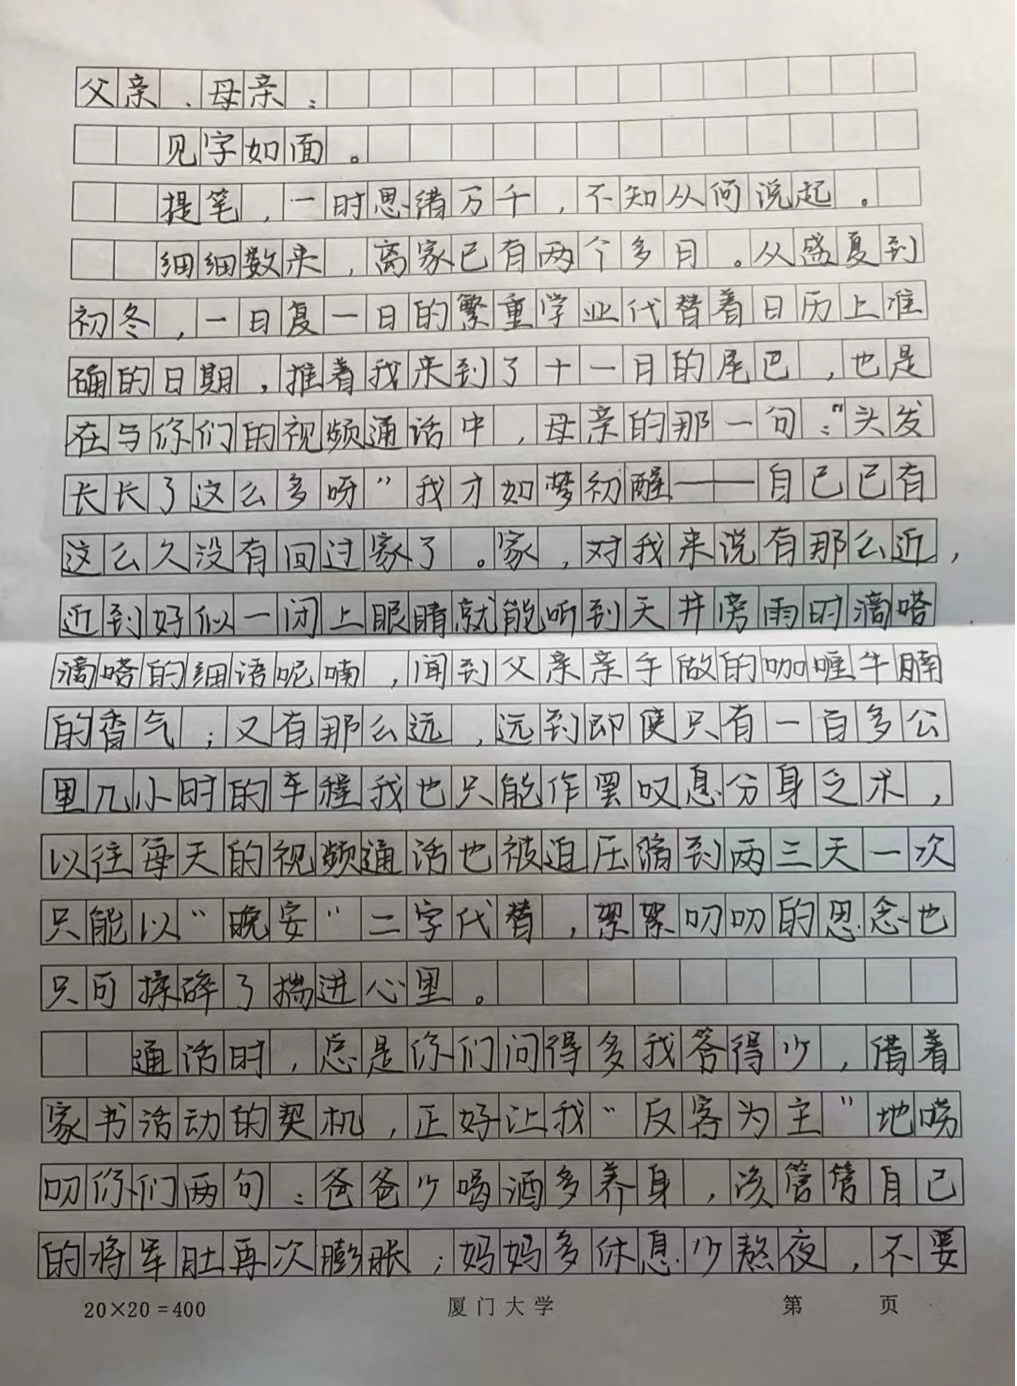 父亲、母亲：
见字如面。
提笔，一时思绪万千，不知从何说起。
细细数来，离家已有两个多月。从盛夏到
初冬，一日复一日的繁重学业代替着日历上准
确的日期，推着我来到了十一月的尾巴，也是
在与你们的视频通话中，母亲的那一句：“头发
长长了这么多呀”我才如梦初醒——自己已有
这么久没有回过家了。家，对我来说有那么近，
近到好似一闭上眼睛就能听到天井旁雨时滴嗒
滴嗒的细语呢喃，闻到父亲亲手做的咖喱牛腩
的香气；又有那么远，远到即使只有一百多公
里几小时的车程我也只能作罢叹息分身乏术，
以往每天的视频通话也被迫压缩到两三天一次
只能以“晚安”二字代替，絮絮叨叨的思念也
只可揉碎了揣进心里。
通话时，总是你们问得多我答得少，借着
家书活动的契机，正好让我“反客为主”地唠
叨你们两句：爸爸少喝酒多养身，该管管自己
的将军肚再次膨胀；妈妈多休息少熬夜，不要
20×20=400 厦门大学 第 页